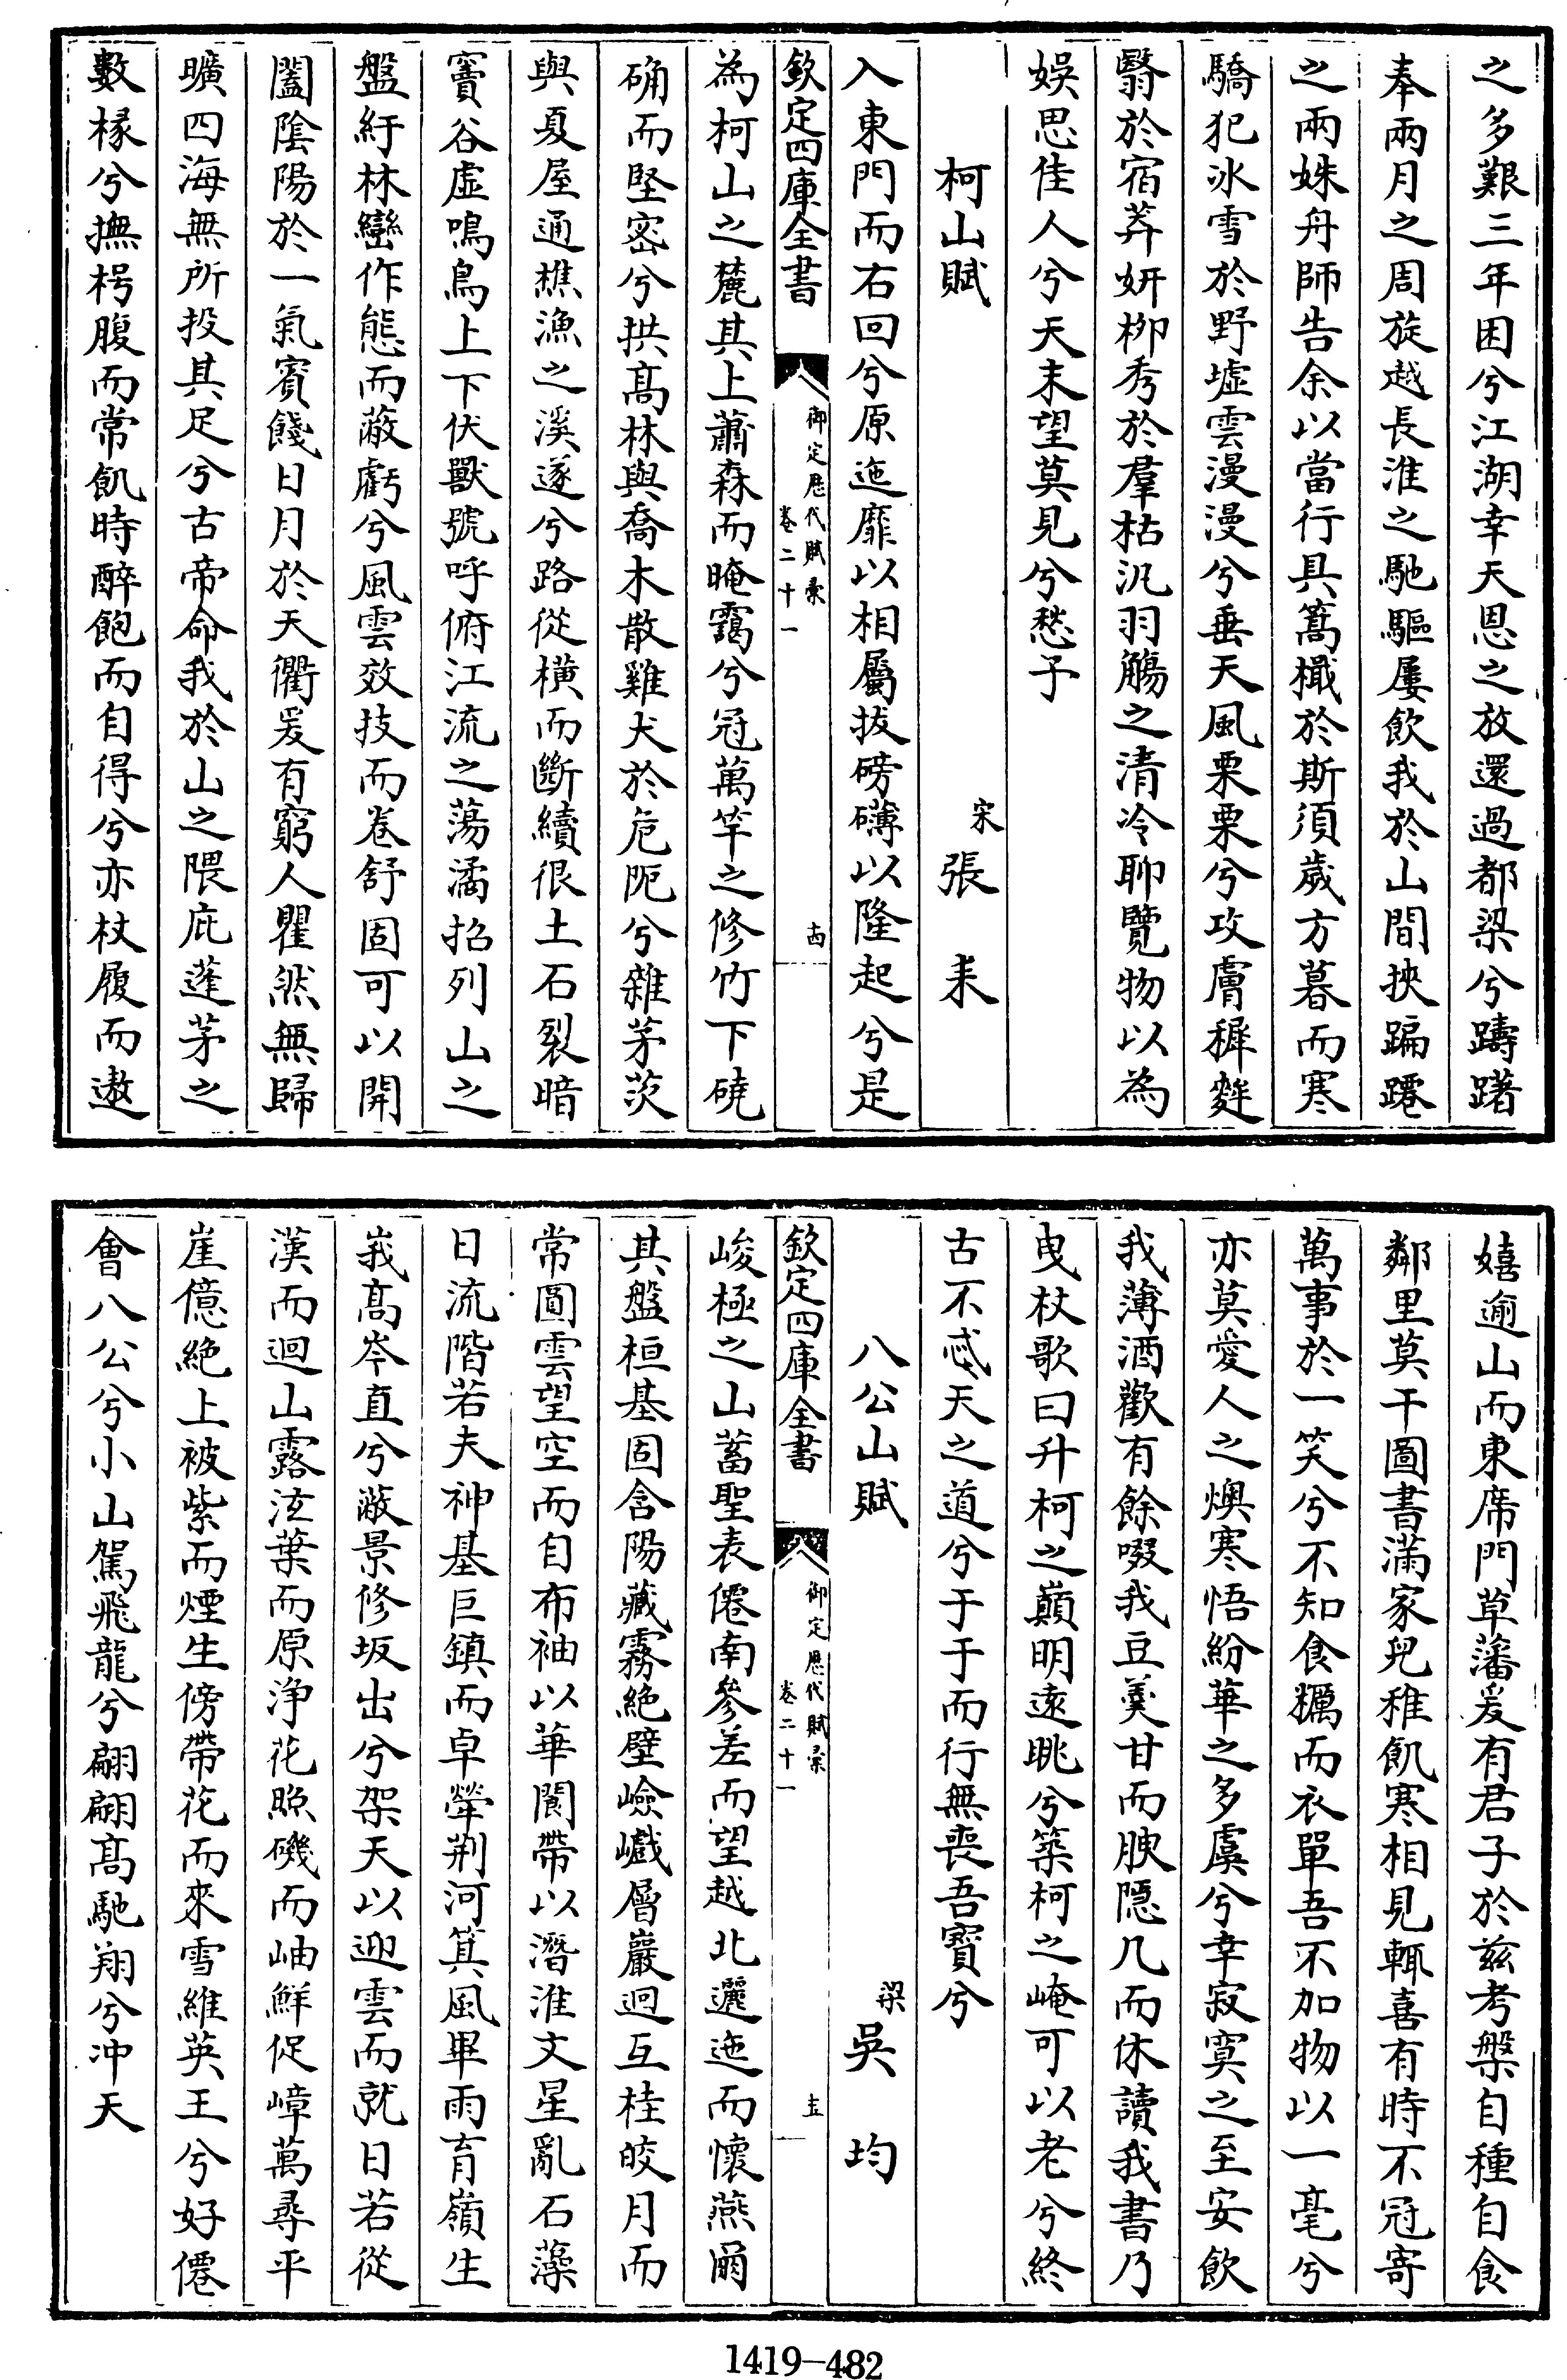 之多艱三年困兮江湖幸天恩之放還過都梁兮躊躇
奉兩月之周旋越長淮之馳驅屢飲我於山間挾蹁躚
之兩姝舟師告余以當行具篙檝於斯須歲方暮而寒
驕犯冰雪於野墟雲漫漫兮垂天風栗栗兮攻膚穉麰
翳於宿莽妍柳秀於羣枯汎羽觴之清泠聊覽物以為
娛思佳人兮天末望莫見兮愁予
柯山賦
宋張耒
入東門而右回兮原迤靡以相屬拔磅礴以隆起兮是
欽定四庫全書
御定歷代賦彙
卷二十一
十四
為柯山之麓其上蕭森而晻靄兮冠萬竿之修竹下磽
确而堅密兮拱髙林與喬木散雞犬於危阨兮雜茅茨
與夏屋通樵漁之溪遂兮路從橫而斷續很土石裂暗
竇谷虛鳴鳥上下伏獸號呼俯江流之蕩潏招列山之
盤紆林巒作態而蔽虧兮風雲效技而卷舒固可以開
闔陰陽於一氣賓餞日月於天衢爰有窮人瞿然無歸
曠四海無所投其足兮古帝命我於山之隈庇蓬茅之
數椽兮撫枵腹而常飢時醉飽而自得兮亦杖履而遨
嬉逾山而東席門草藩爰有君子於兹考槃自種自食
鄰里莫干圖書滿家兒稚飢寒相見輒喜有時不冠寄
萬事於一笑兮不知食糲而衣單吾不加物以一毫兮
亦莫愛人之燠寒悟紛華之多虞兮幸寂寞之至安飲
我薄酒歡有餘啜我豆羹甘而腴隱几而休讀我書乃
曳杖歌曰升柯之巔明遠眺兮築柯之崦可以老兮終
古不忒天之道兮于于而行無喪吾寳兮
八公山賦
梁吳均
欽定四庫全書
御定歷代賦彙
卷二十一
十五
峻極之山蓄聖表僊南參差而望越北邐迤而懷燕爾
其盤桓基固含陽藏霧絶壁嶮巇層巖迴互桂皎月而
常圓雲望空而自布袖以華閬帶以潛淮文星亂石藻
日流階若夫神基巨鎮而卓犖荆河箕風畢雨育嶺生
峩髙岑直兮蔽景修坂出兮架天以迎雲而就日若從
漢而迴山露泫葉而原淨花照磯而岫鮮促嶂萬尋平
崖億絶上被紫而煙生傍帶花而來雪維英王兮好僊
會八公兮小山駕飛龍兮翩翩髙馳翔兮冲天
1419—482